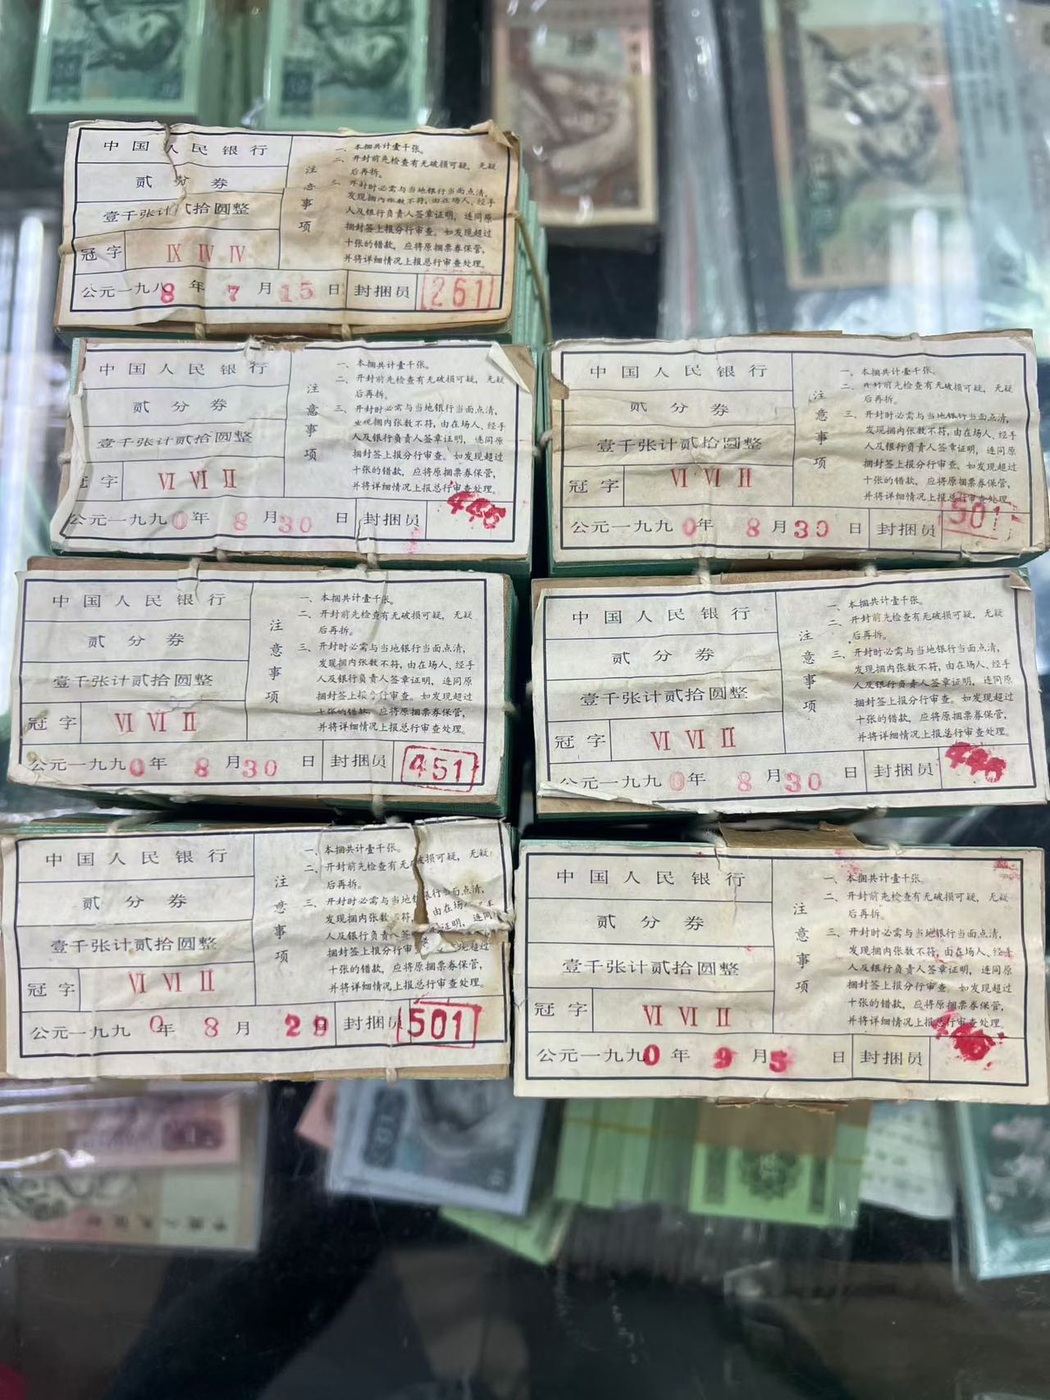 中国人民银行
贰分券
壹千张计贰拾圆整
冠字 IX IV IV
公元一九八8年7月15日 封捆员 261
注意事项
一、本捆共计壹千张。
二、开封前先检查有无破损可疑，无疑
后再拆。
三、开封时必需与当地银行当面点清，
发现捆内张数不符，由在场人、经手
人及银行负责人签章证明，连同原
捆封签上报分行审查。如发现超过
十张的错款，应将原捆票券保管，
并将详细情况上报总行审查处理。
中国人民银行
贰分券
壹千张计贰拾圆整
字 VI VI II
公元一九九0年8月30日 封捆员
注意事项
一、本捆共计壹千张。
二、开封前先检查有无破损可疑，无疑
后再拆。
三、开封时必需与当地银行当面点清，
发现捆内张数不符，由在场人、经手
人及银行负责人签章证明，连同
捆封签上报分行审查。如发现超过
十张的错款，应将原捆票券保管，
并将详细情况上报总行审查处理。
中国人民银行
贰分券
壹千张计贰拾圆整
冠字 VI VI II
公元一九九0年8月30日 封捆员 501
注意事项
一、本捆共计壹千张。
二、开封前先检查有无破损可疑，无疑
后再拆。
三、开封时必需与当地银行当面点清，
发现捆内张数不符，由在场人、经手
人及银行负责人签章证明，连同原
捆封签上报分行审查。如发现超过
十张的错款，应将原捆票券保管，
并将详细情况上报总行审查处理。
中国人民银行
贰分券
壹千张计贰拾圆整
冠字 VI VI II
公元一九九0年8月30日 封捆员 451
注意事项
一、本捆共计壹千张。
二、开封前先检查有无破损可疑，无疑
后再拆。
三、开封时必需与当地银行当面点清，
发现捆内张数不符，由在场人、经手
人及银行负责人签章证明，连同原
捆封签上报分行审查。如发现超过
十张的错款，应将原捆票券保管，
并将详细情况上报总行审查处理。
中国人民银行
贰分券
壹千张计贰拾圆整
冠字 VI VI II
公元一九九0年8月30日 封捆员
注意事项
一、本捆共计壹千张。
二、开封前先检查有无破损可疑，无疑
后再拆。
三、开封时必需与当地银行当面点清，
发现捆内张数不符，由在场人、经手
人及银行负责人签章证明，连同原
捆封签上报分行审查。如发现超过
十张的错款，应将原捆票券保管，
并将详细情况上报总行审查处理。
中国人民银行
贰分券
壹千张计贰拾圆整
冠字 VI VI II
公元一九九0年8月29日 封捆员 501
注意事项
一、本捆共计壹千张。
二、开封前先检查有无破损可疑，无疑
后再拆。
三、开封时必需与当地银行当面点清，
发现捆内张数不符，由在场人、经手
人及银行负责人签章证明，连同
捆封签上报分行审查。如发现超过
十张的错款，应将原捆票券保管，
并将详细情况上报总行审查处理。
中国人民银行
贰分券
壹千张计贰拾圆整
冠字 VI VI II
公元一九九0年9月5日 封捆员
注意事项
一、本捆共计壹千张。
二、开封前先检查有无破损可疑，无疑
后再拆。
三、开封时必需与当地银行当面点清，
发现捆内张数不符，由在场人、经手
人及银行负责人签章证明，连同原
捆封签上报分行审查。如发现超过
十张的错款，应将原捆票券保管，
并将详细情况上报总行审查处理。